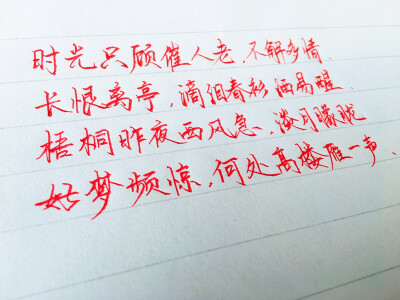 时光只顾催人老，不解多情，
长恨离亭，滴泪春衫酒易醒。
梧桐昨夜西风急，淡月朦胧
好梦频惊，何处高楼雁一声。